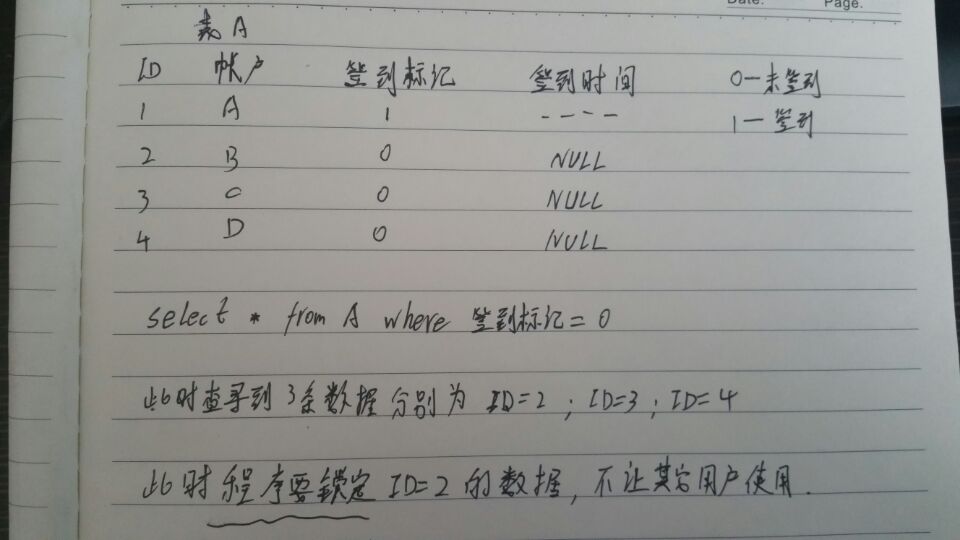 Date. Page.
表A
ID 帐户 签到标记 签到时间 0—未签到
1 A 1 ---- 1—签到
2 B 0 NULL
3 C 0 NULL
4 D 0 NULL
select * from A where 签到标记=0
此时查寻到3条数据分别为 ID=2;ID=3;ID=4
此时程序要锁定ID=2的数据,不让其它用户使用.